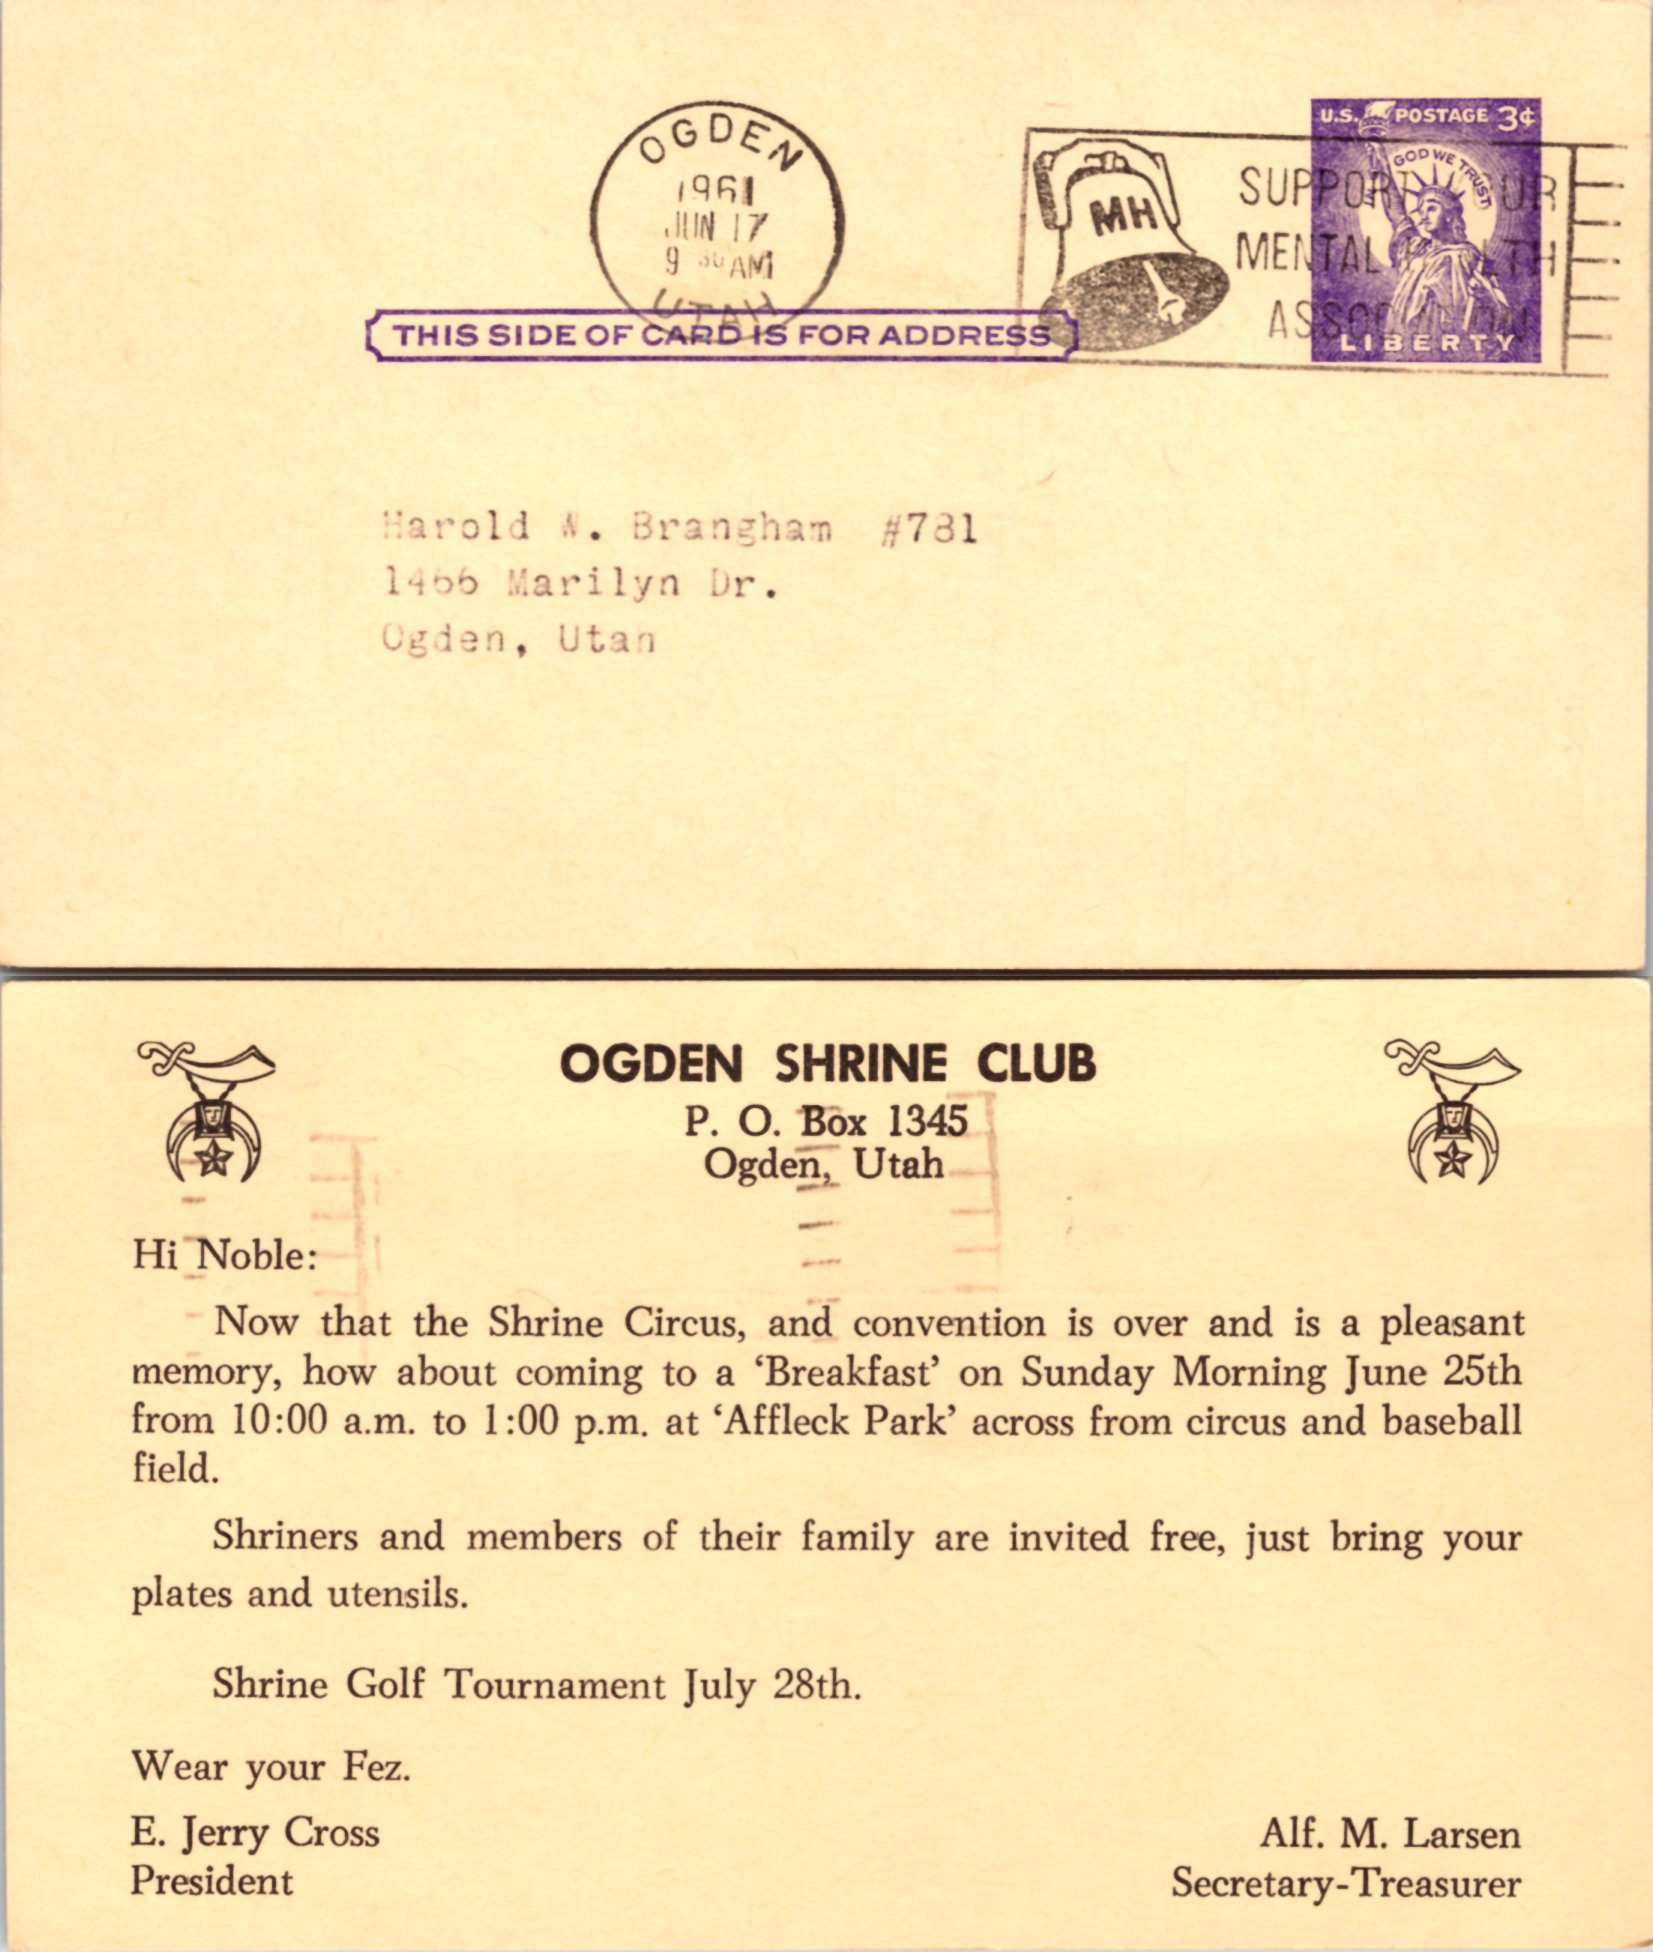 OGDEN
1961
JUN 17
9 30 AM
UTAH
MH
SUPPORT YOUR
MENTAL HEALTH
ASSOCIATION
U.S. POSTAGE 3¢
IN GOD WE TRUST
LIBERTY
THIS SIDE OF CARD IS FOR ADDRESS
Harold W. Brangham #781
1466 Marilyn Dr.
Ogden, Utah
OGDEN SHRINE CLUB
P. O. Box 1345
Ogden, Utah
Hi Noble:
Now that the Shrine Circus, and convention is over and is a pleasant
memory, how about coming to a ‘Breakfast’ on Sunday Morning June 25th
from 10:00 a.m. to 1:00 p.m. at ‘Affleck Park’ across from circus and baseball
field.
Shriners and members of their family are invited free, just bring your
plates and utensils.
Shrine Golf Tournament July 28th.
Wear your Fez.
E. Jerry Cross
President
Alf. M. Larsen
Secretary-Treasurer